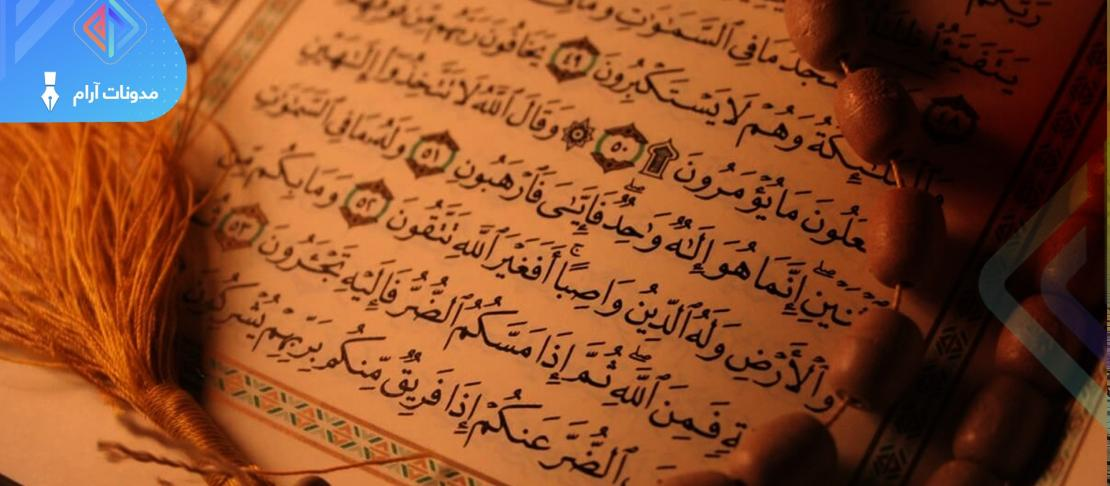 مدونات آرام
رَبُّكُمْ
يَتَفَيَّؤُا۟ ظِلَٰلُهُۥ ٤٨
يَسْجُدُ مَا فِى ٱلسَّمَٰوَٰتِ وَمَا فِى
وَٱلْمَلَٰٓئِكَةُ وَهُمْ لَا يَسْتَكْبِرُونَ ٤٩ يَخَافُونَ رَبَّهُم مِّن فَوْقِهِمْ
وَيَفْعَلُونَ مَا يُؤْمَرُونَ ۩ ٥٠ ۞ وَقَالَ ٱللَّهُ لَا تَتَّخِذُوٓا۟ إِلَٰهَيْنِ
ٱثْنَيْنِ ۖ إِنَّمَا هُوَ إِلَٰهٌ وَٰحِدٌ ۖ فَإِيَّٰىَ فَٱرْهَبُونِ ٥١ وَلَهُۥ مَا فِى ٱلسَّمَٰوَٰتِ
وَٱلْأَرْضِ وَلَهُ ٱلدِّينُ وَاصِبًا ۚ أَفَغَيْرَ ٱللَّهِ تَتَّقُونَ ٥٢ وَمَا بِكُم مِّن
فَمِنَ ٱللَّهِ ۖ ثُمَّ إِذَا مَسَّكُمُ ٱلضُّرُّ فَإِلَيْهِ تَجْـَٔرُونَ ٥٣
ٱلضُّرَّ عَنكُمْ إِذَا فَرِيقٌ مِّنكُم بِرَبِّهِمْ يُشْرِكُونَ